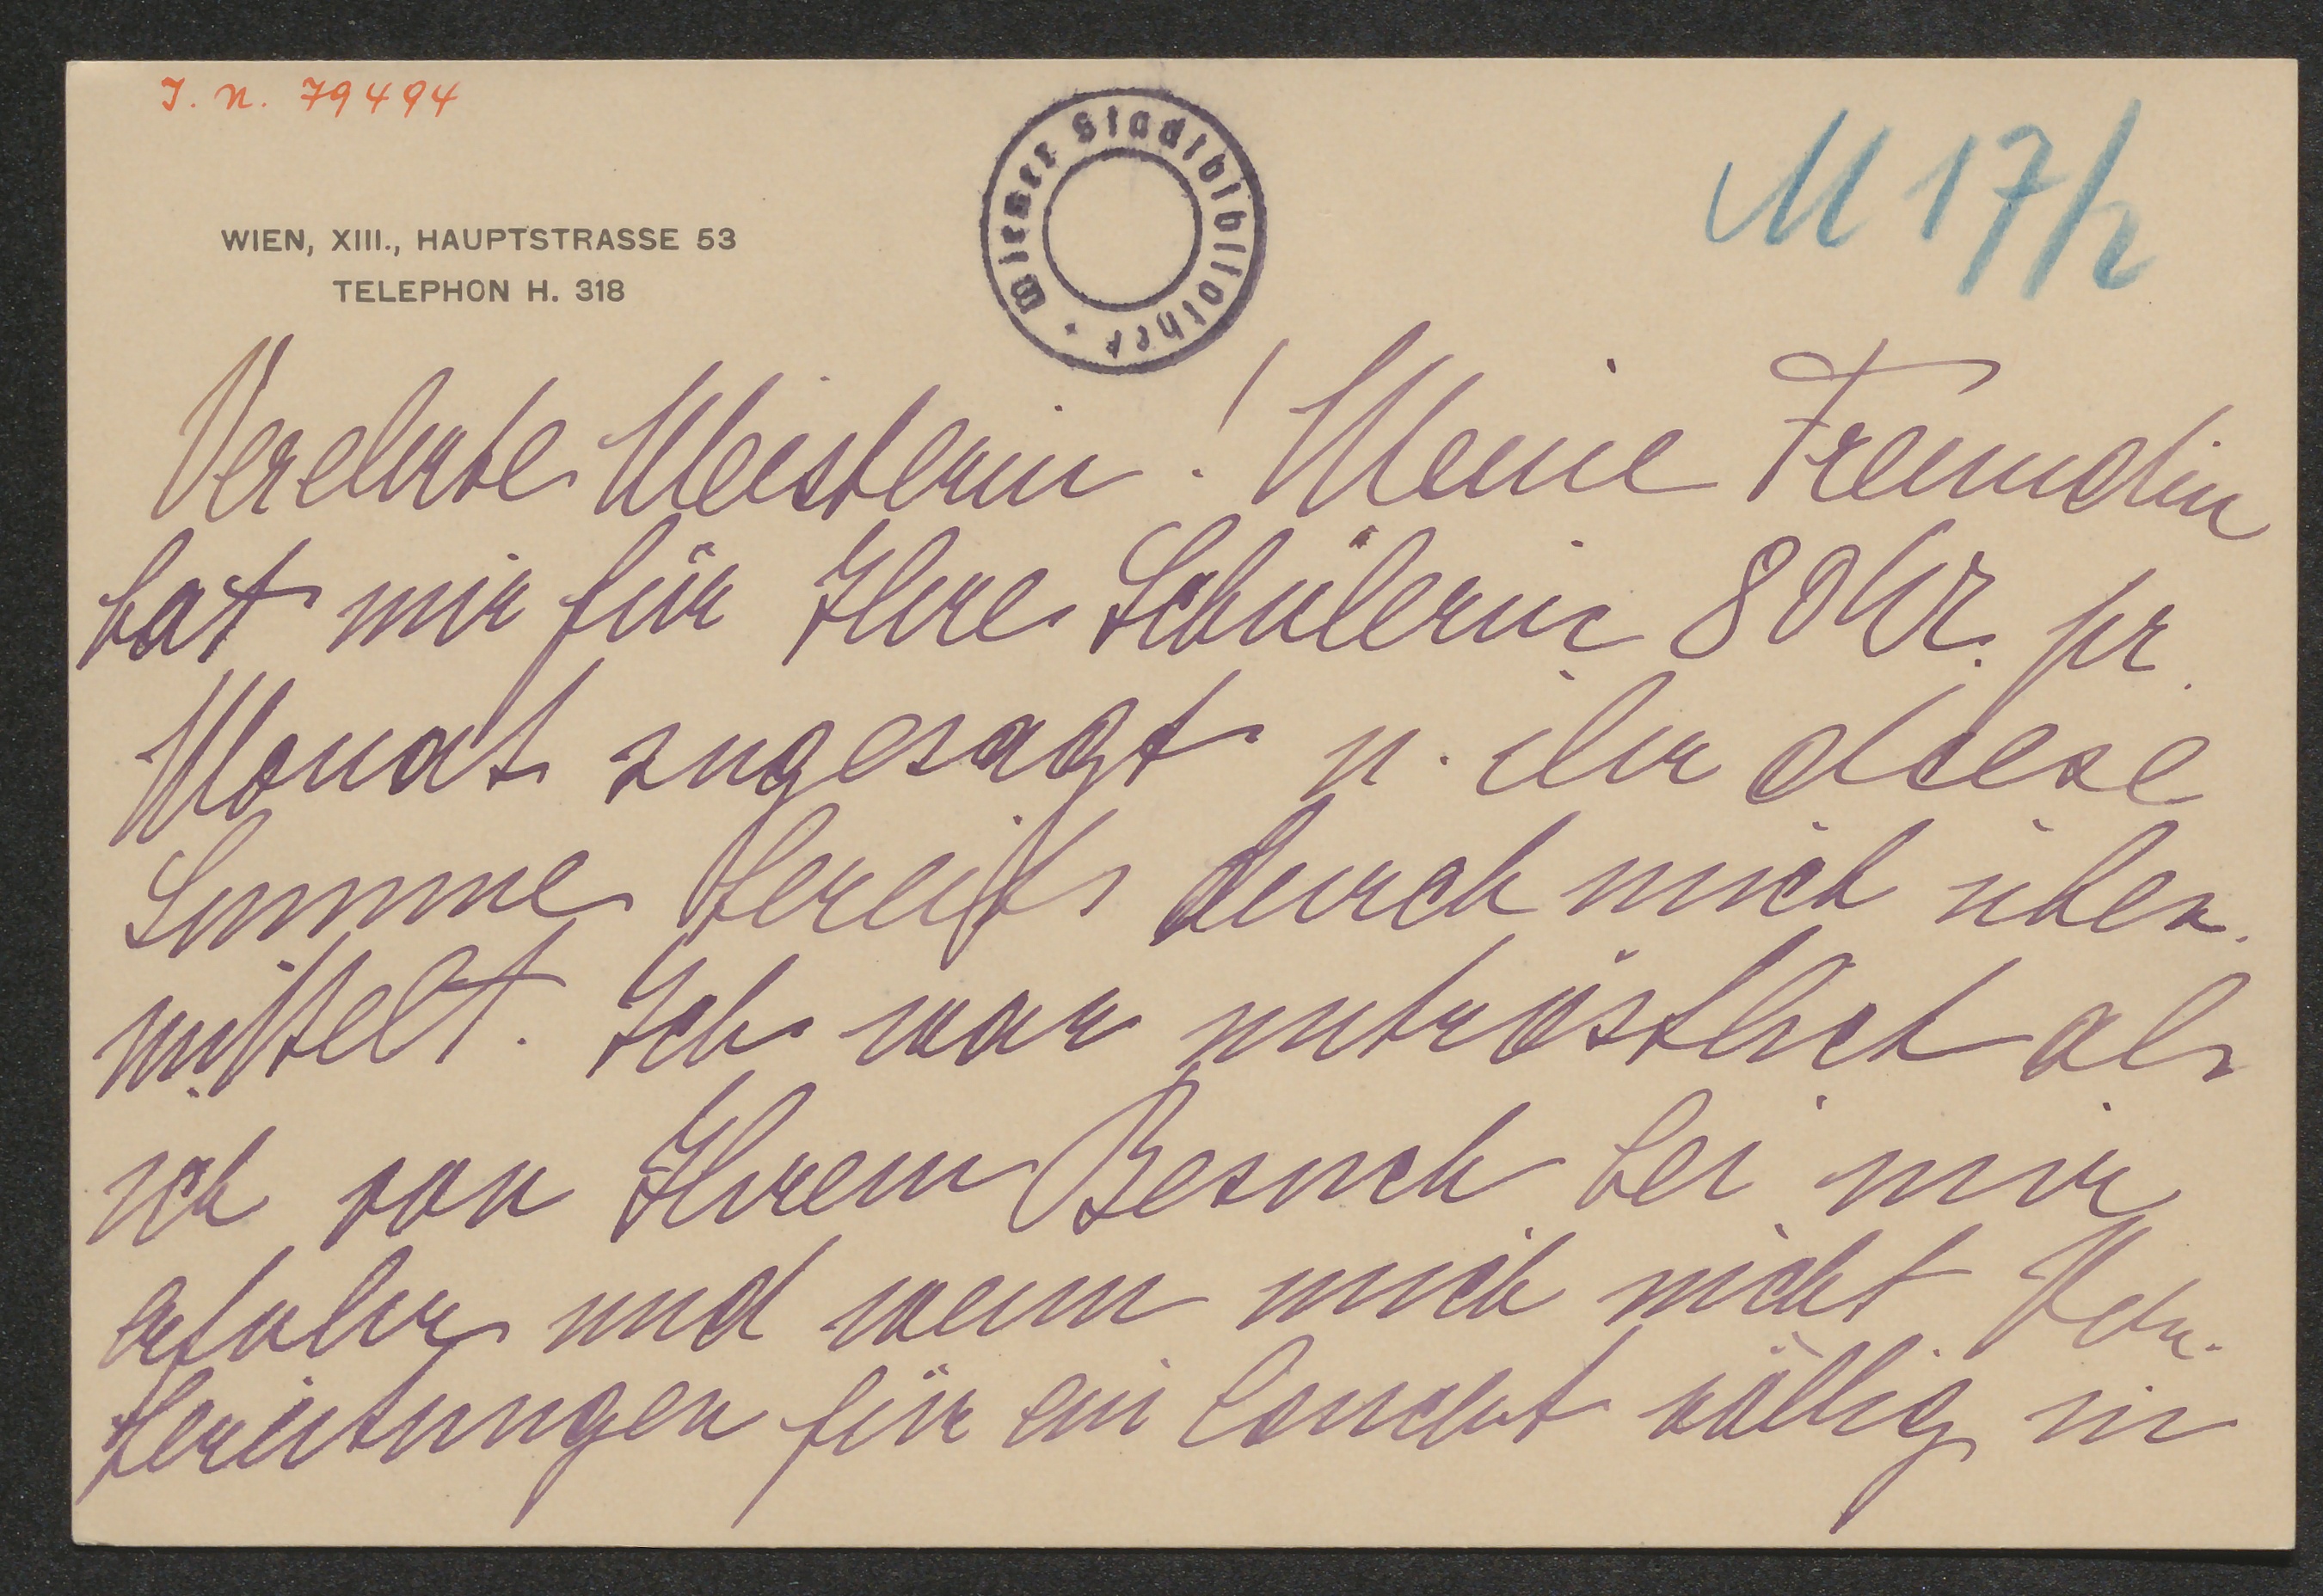 J. N. 79494
Wiener Stadtbibliothek
M 17/2
WIEN, XIII., HAUPTSTRASSE 53
TELEPHON H. 318
Verehrte Meisterin! Meine Freundin
hat mir für Ihre Schülerin 80 Kr. pr.
Monat zugesagt u. ihr diese
Summe bereits durch mich über
mittelt. Ich war untröstlich als
ich von Ihrem Besuch bei mir
erfuhr und wenn mich nicht Vor
bereitungen für ein Concert völlig in